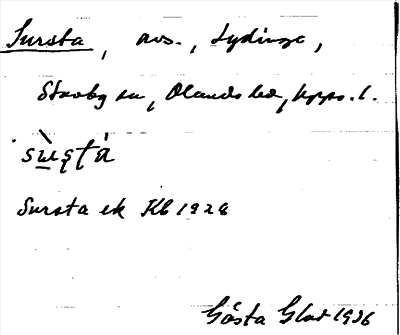 Sursta, avs., Lydinge,
Stavby sn, Olands hd, Upps. l.
sùṣṭá
Sursta ek Kb 1928
Gösta Glad 1936